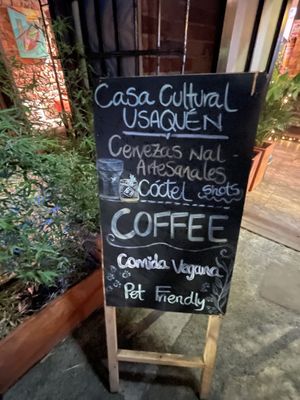 Casa Cultural
USAQUÉN
Cervezas Nal
Artesanales
Cóctel Shots
COFFEE
Comida Vegana
Pet Friendly